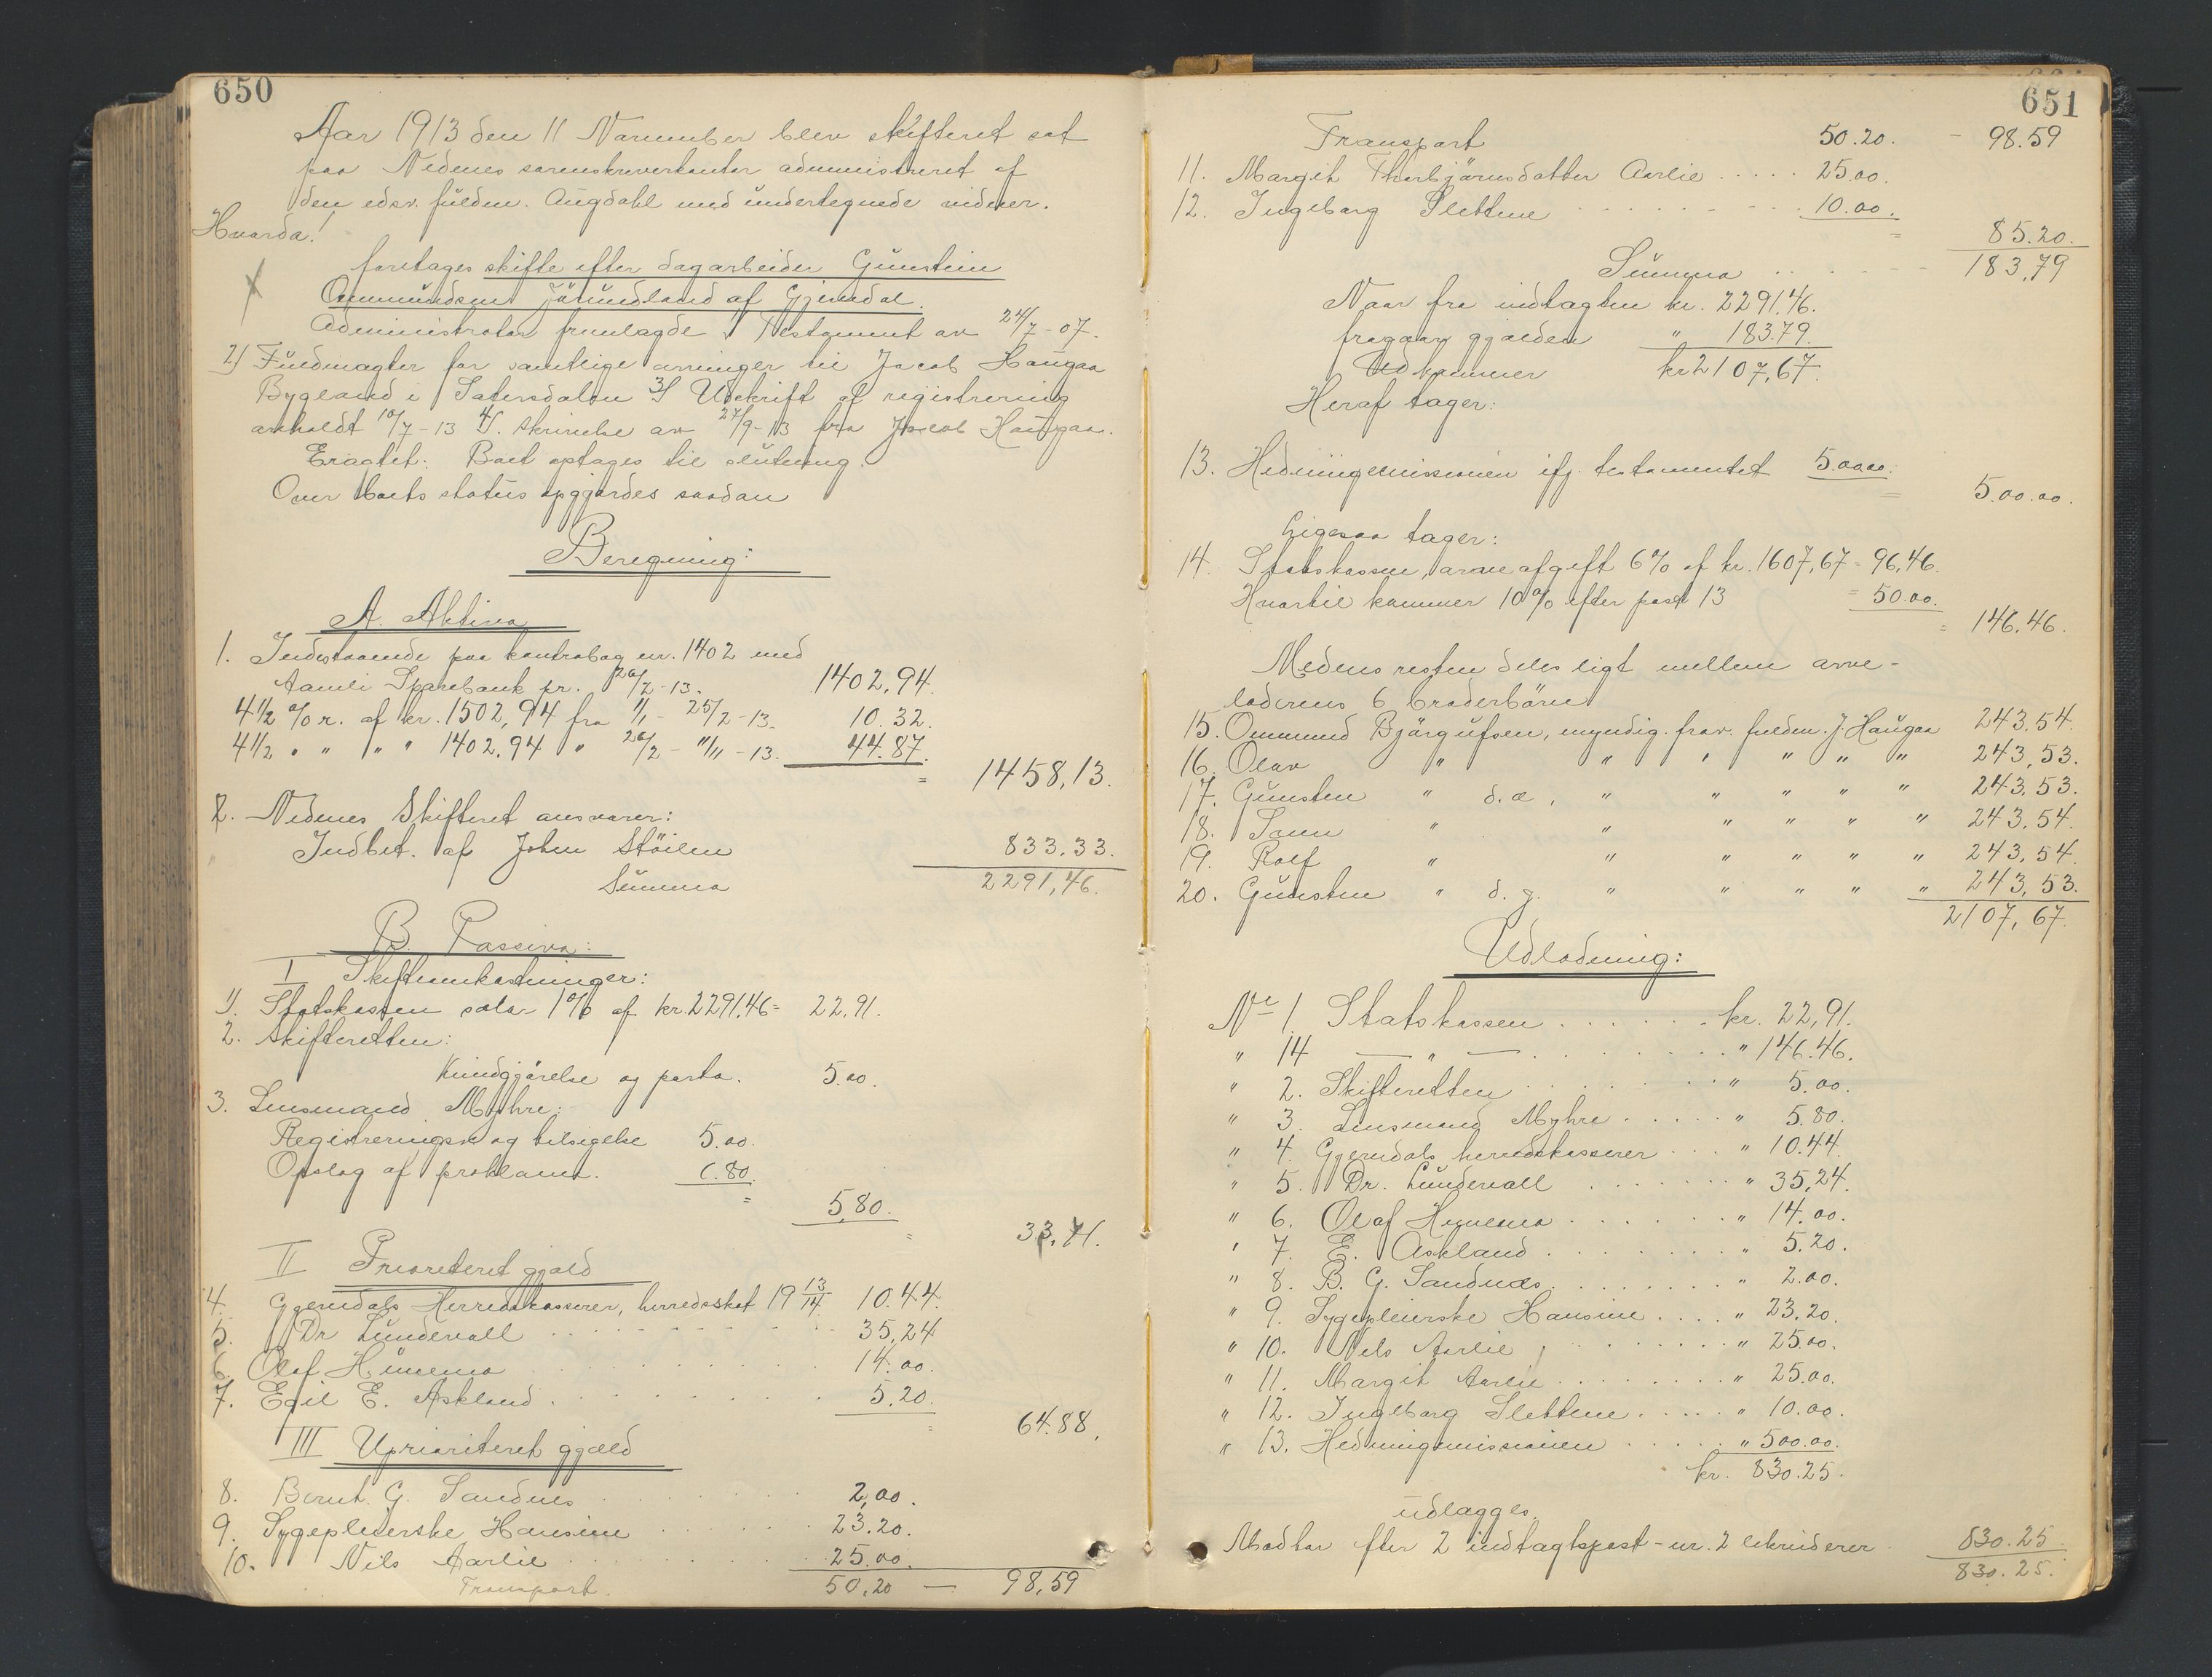 650
Aar 1913 den 11 November blev skifteret sat
paa Nedenes sorenskriverkontor administreret af
den edsv. fuldm. Augdahl med undertegnede vidner.
Hvorda!
foretages skifte efter dagarbeider Gunstein
Ommundsen Jörundland af Gjövdal.
Administrator fremlagde 1) Testament av 24/7-07.
2) Fuldmagter for samtlige arvinger til Jacob Haugaa
Bygland i Sætersdalen 3) Udskrift af registrering
avholdt 10/7-13 4). Skrivelse av 27/9-13 fra Jacob Haugaa.
Eragtet: Boet optages til slutning.
Over boets status opgjördes saadan
Beregning:
A. Aktiva
1. Indestaaende paa kontrabog nr. 1402 med
Aamli Sparebank pr. 26/2-13. 1402,94.
4 1/2 % r. af kr. 1502,94 fra 1/1 - 25/2-13. 10.32.
4 1/2 " " " " 1402.94 " 26/2 - 11/11-13. 44.87.
= 1458,13.
2. Nedenes Skifteret ansvarer:
Indbet. af John Stöilen 833.33.
Summa 2291,46.
B. Passiva:
I Skifteomkostninger:
1). Statskassen salar 1% af kr. 2291.46 = 22.91.
2. Skifteretten:
Kundgjörelse og porto. 5.00.
3. Lensmand Myhre:
Registrering og tilsigelse 5.00.
Opslag af proklama. 0.80.
= 5.80.
= 33.71.
II Prioriteret gjæld
4. Gjövdals Herredskasserer, herredsskat 19 13/14 10.44.
5. Dr Lundevall 35,24
6. Olaf 14.00.
7. Egil E. Askland. 5.20.
= 64.88.
III Uprioriteret gjæld
8. Bernt. G. Sandnes 2,00.
9. Sygepleierske Hansine 23.20.
10. Nils Aarlie 25.00.
Transport. 50,20 — 98,59
651
Transport 50.20. - 98.59
11. Margit Thorbjörnsdatter Aarlie 25.00.
12. Ingeborg Slettene 10.00.
= 85.20.
Summa 183,79
Naar fra indtægten kr. 2291.46.
fragaar gjælden " 183.79.
Udkommer kr 2107,67.
Heraf tager:
13. Hedningemissionen ifj. testamentet 500.00.
= 500.00.
Ligesaa tager:
14. Statskassen, arveafgift 6% af kr. 1607,67 = 96,46.
Hvortil kommer 10% efter post 13 = 50.00.
= 146.46.
Medens resten deles ligt mellem arve-
laderens 6 broderbörn
15. Ommund Björgufsen, myndig. frav. fuldm. J. Haugaa 243.54.
16. Olav " " " " " " 243,53.
17. Gunsten " d. æ, " " " " " 243.53.
18. " " " " " " 243.54.
19. Rolf " " " " " " 243,54.
20. Gunsten " d. y. " " " " " 243,53.
2107,67.
Udlodning:
No 1 Statskassen kr. 22,91.
" 14 — " — " 146.46.
" 2. Skifteretten " 5.00.
" 3. Lensmand Myhre " 5.80.
" 4. Gjövdals herredskasserer " 10.44.
" 5. Dr. Lundevall " 35,24.
" 6. Olaf " 14.00.
" 7. E. Askland " 5.20.
" 8. B. G. Sandnes " 2.00.
" 9. Sygepleierske Hansine " 23.20.
" 10. Nils Aarlie " 25.00.
" 11. Margit Aarlie " 25.00.
" 12. Ingeborg Slettene " 10.00.
" 13. Hedningemissionen " 500.00.
kr. 830.25.
udlægges.
Modtar efter 2 indtægtspost - nr. 2 830.25
830.25.